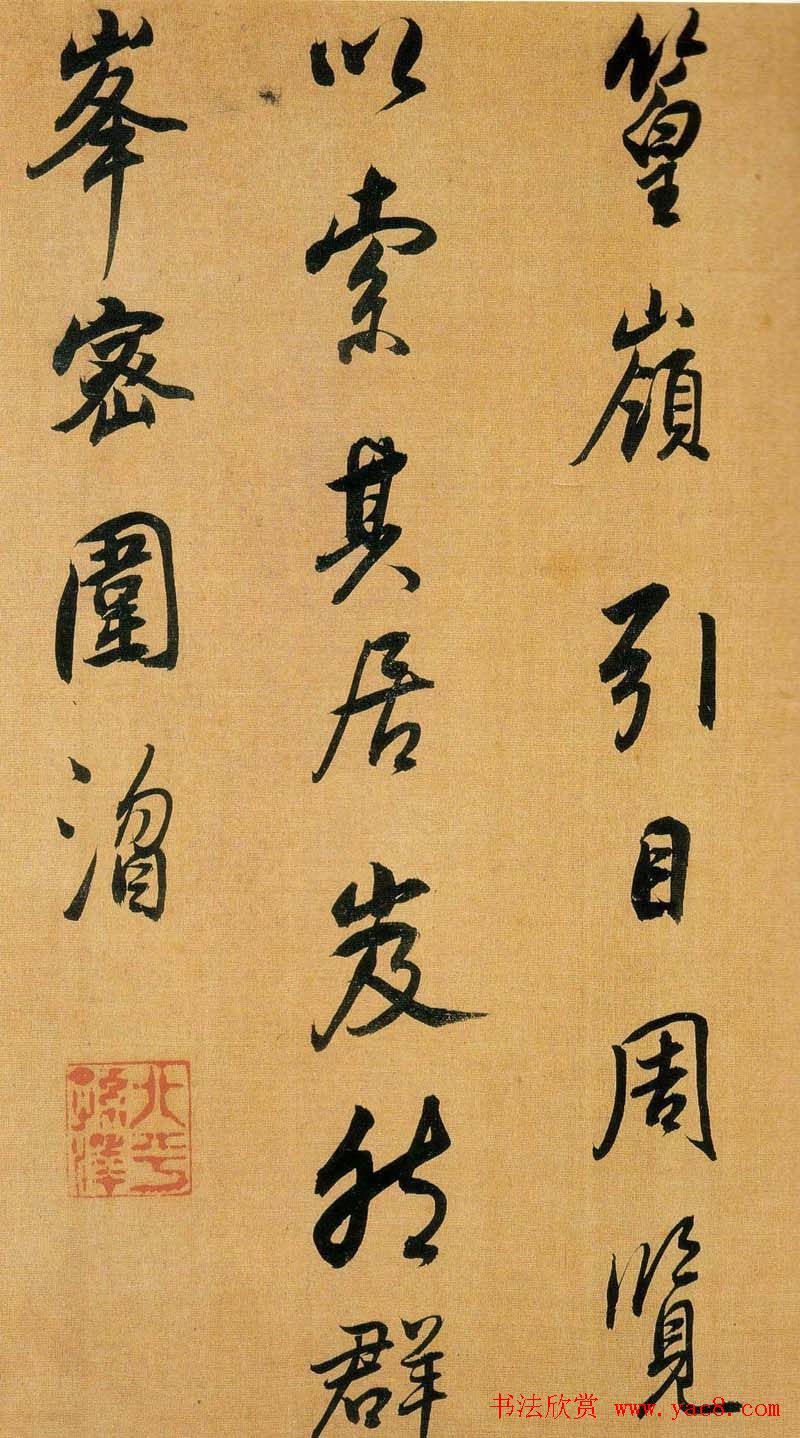 篁嶺引目周覽
以索其居岌然群
峯密圍滑
北平孫澤
书法欣赏 www.yac8.com